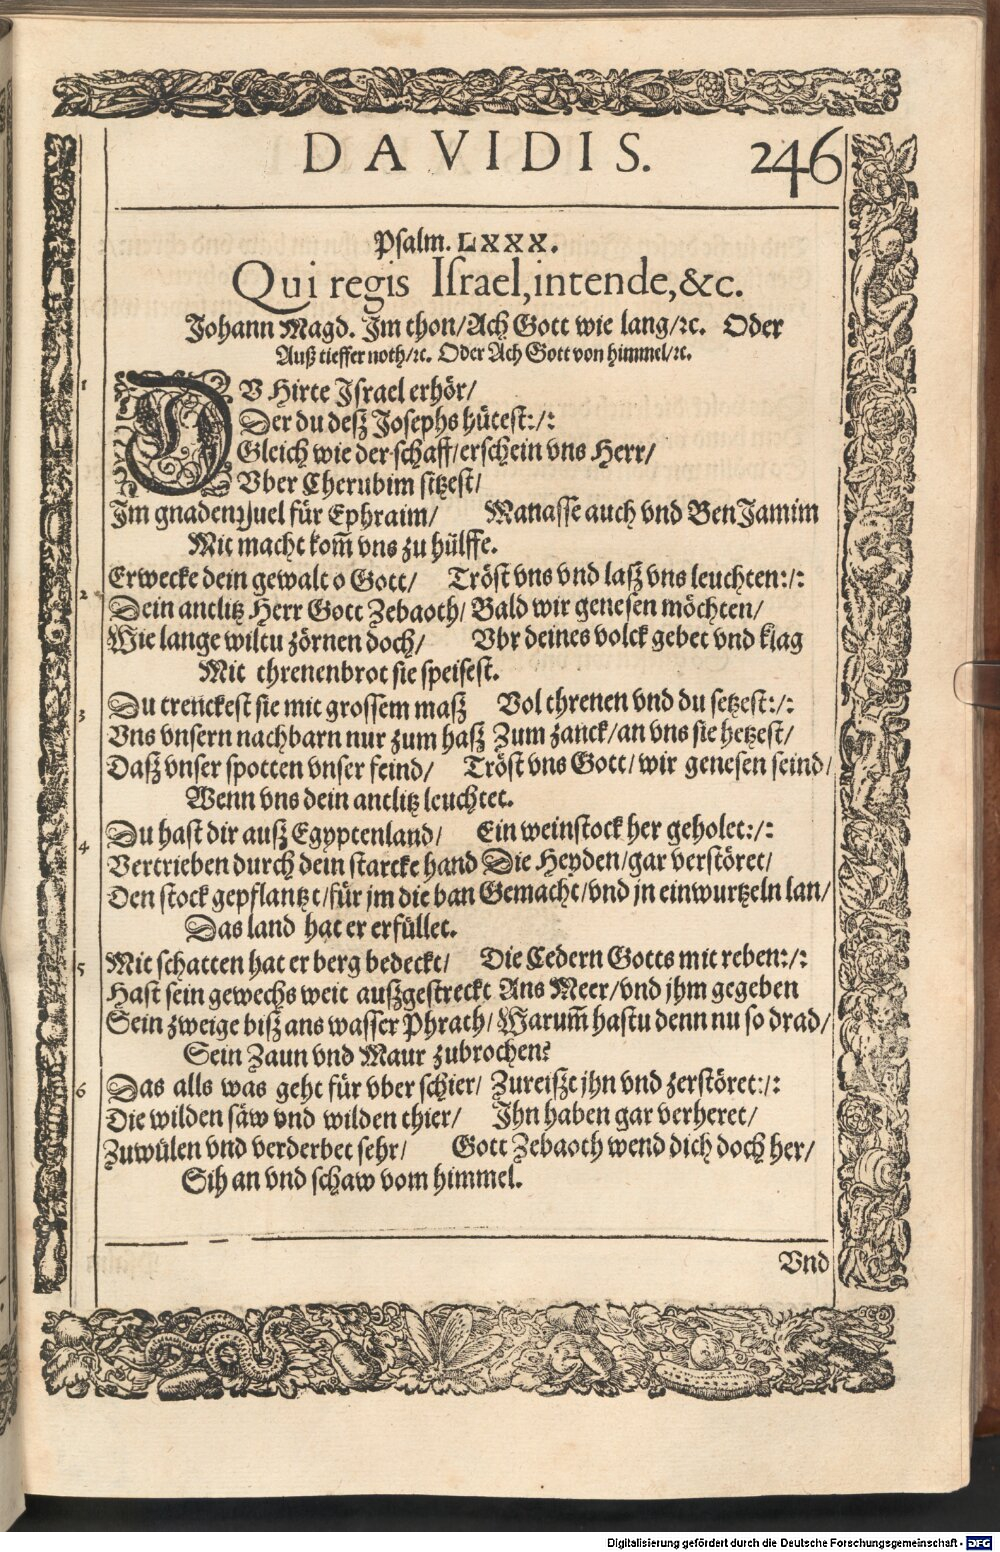 DAVIDIS. 246
Psalm. LXXX.
Qui regis Israel, intende, &c.
Johann Magd. Im thon/ Ach Gott wie lang/ꝛc. Oder
Auß tieffer noth/ꝛc. Oder Ach Gott von himmel/ꝛc.
1 DV Hirte Israel erhör/
Der du desz Josephs hütest:/:
Gleich wie der schaff/erschein vns Herr/
Vber Cherubim sitzest/
Im gnadenstuel für Ephraim/ Manasse auch vnd BenJamim
Mit macht kom̃ vns zu hülffe.
2 Erwecke dein gewalt o Gott/ Tröst vns vnd lasz vns leuchten:/:
Dein antlitz Herr Gott Zebaoth/ Bald wir genesen möchten/
Wie lange wiltu zörnen doch/ Vbr deines volck gebet vnd klag
Mit threnenbrot sie speisest.
3 Du trenckest sie mit grossem masz Vol threnen vnd du setzest:/:
Vns vnsern nachbarn nur zum hasz Zum zanck/an vns sie hetzest/
Dasz vnser spotten vnser feind/ Tröst vns Gott/ wir genesen seind/
Wenn vns dein antlitz leuchtet.
4 Du hast dir ausz Egyptenland/ Ein weinstock her geholet:/:
Vertrieben durch dein starcke hand Die Heyden/gar verstöret/
Den stock gepflantzt/für jm die ban Gemacht/vnd jn einwurtzeln lan/
Das land hat er erfüllet.
5 Mit schatten hat er berg bedeckt/ Die Cedern Gotts mit reben:/:
Hast sein gewechs weit auszgestreckt Ans Meer/vnd jhm gegeben
Sein zweige bisz ans wasser Phrath/ Warum̃ hastu denn nu so drad/
Sein Zaun vnd Maur zubrochen?
6 Das alls was geht für vber schier/ Zureiszt jhn vnd zerstöret:/:
Die wilden säw vnd wilden thier/ Ihn haben gar verheret/
Zuwülen vnd verderbet sehr/ Gott Zebaoth wend dich doch her/
Sih an vnd schaw vom himmel.
Vnd
Digitalisierung gefördert durch die Deutsche Forschungsgemeinschaft - DFG